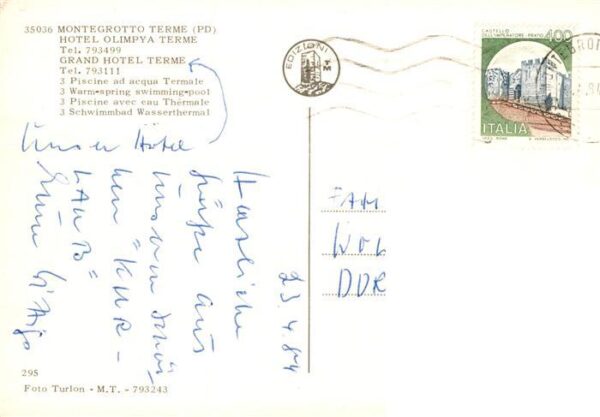 35036 MONTEGROTTO TERME (PD)
HOTEL OLIMPYA TERME
Tel. 793499
GRAND HOTEL TERME
Tel. 793111
3 Piscine ad acqua Termale
3 Warm-spring swimming-pool
3 Piscine avec eau Thérmale
3 Schwimmbad Wasserthermal
Unser Hotel
EDIZIONI
TM
CASTELLO
DELL'IMPERATORE · PRATO
400
ITALIA
23.4.84
Herzliche
Grüße aus
unserem
"KUR-
LAUB"
FAM
WOL
DDR
295
Foto Turlon - M.T. - 793243